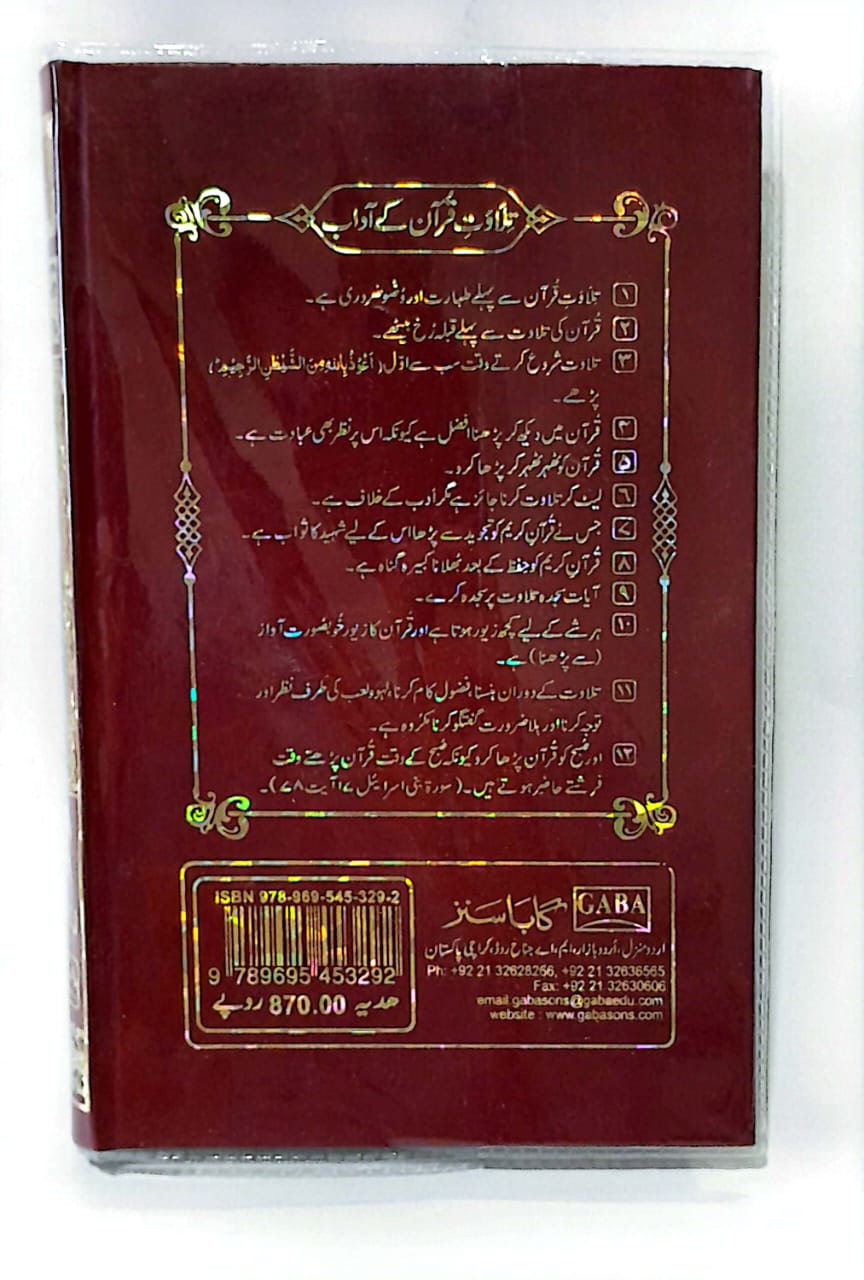 تلاوتِ قُرآن کے آداب
۱ تلاوتِ قُرآن سے پہلے طہارت اور وُضو ضروری ہے۔
۲ قُرآن کی تلاوت سے پہلے قبلہ رُخ بیٹھے۔
۳ تلاوت شروع کرتے وقت سب سے اوّل (اَعُوْذُ بِاللّٰهِ مِنَ الشَّيْطٰنِ الرَّجِيْمِ)
پڑھے۔
۴ قُرآن میں دیکھ کر پڑھنا افضل ہے کیونکہ اس پر نظر بھی عبادت ہے۔
۵ قُرآن کو ٹھہر ٹھہر کر پڑھا کرو۔
۶ لیٹ کر تلاوت کرنا جائز ہے مگر ادب کے خلاف ہے۔
۷ جس نے قُرآنِ کریم کو تجوید سے پڑھا اس کے لیے شہید کا ثواب ہے۔
۸ قُرآنِ کریم کو حفظ کے بعد بُھلانا کبیرہ گناہ ہے۔
۹ آیات سجدہ تلاوت پر سجدہ کرے۔
۱۰ ہر شے کے لیے کچھ زیور ہوتا ہے اور قُرآن کا زیور خُوبصورت آواز
(سے پڑھنا) ہے۔
۱۱ تلاوت کے دوران ہنسنا، فضول کام کرنا، لہو و لعب کی طرف نظر اور
توجہ کرنا اور بلا ضرورت گفتگو کرنا مکروہ ہے۔
۱۲ اور صُبح کو قُرآن پڑھا کرو کیونکہ صُبح کے وقت قُرآن پڑھتے وقت
فرشتے حاضر ہوتے ہیں۔ (سورۃ بنی اسرائیل ۱۷ آیت ۷۸)۔
GABA گابا سنز
اردو منزل، اُردو بازار، ایم۔اے جناح روڈ، کراچی پاکستان
Ph: +92 21 32628266, +92 21 32636565
Fax: +92 21 32630606
email.gabasons@gabaedu.com
website : www.gabasons.com
ISBN 978-969-545-329-2
9 789695 453292
ھدیہ 870.00 روپے